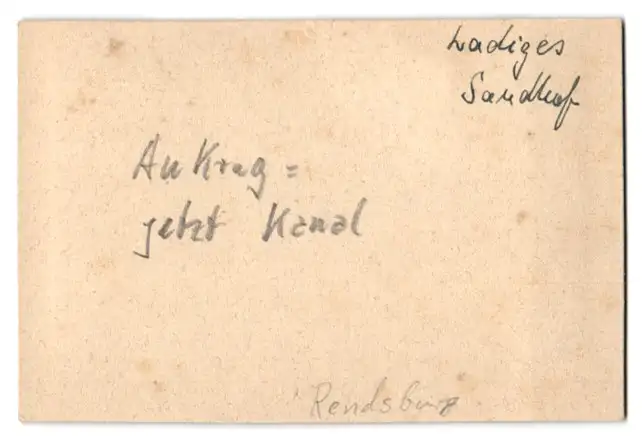 Ladiges
Sandhof
AuKrug =
jetzt Kanal
Rendsburg